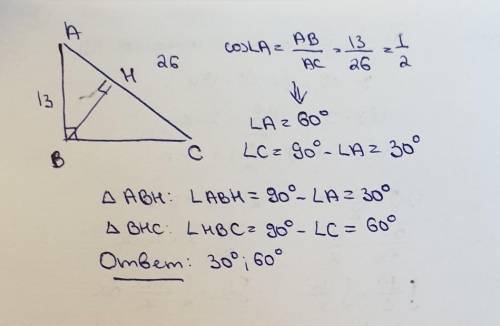 A
26
cos∠A = AB/AC = 13/26 = 1/2
H
13
⇓
∠A = 60°
B
C
∠C = 90° - ∠A = 30°
△ ABH: ∠ABH = 90° - ∠A = 30°
△ BHC: ∠HBC = 90° - ∠C = 60°
Ответ: 30°; 60°